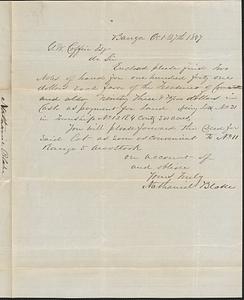 Bangor Oct 27th 1847
A W Coffin Esq
Dr Sir
Enclosed please find two
Notes of hand for one hundred forty one
dollars each favor of the Treasurer of
and also Twenty three dollars in
Cash as payment for land being Lot No 21
in Township No 12 R 4 Conty 200 acres
You will please forward the Deed for
Said Lot as soon as convenient To No 11
Range 5 Aroostook
on account of
and oblige
Yours Truly
Nathaniel Blake
Nathaniel Blake